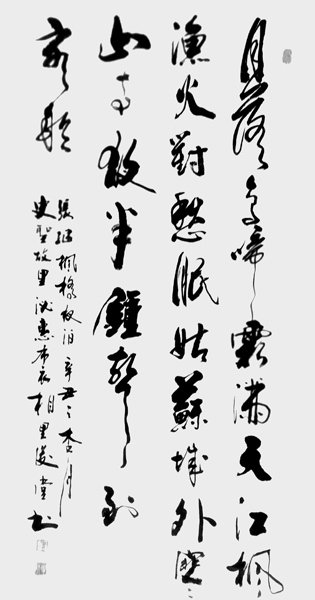 月落烏啼霜滿天江楓
漁火對愁眠姑蘇城外寒
山寺夜半鐘聲到
客船
張繼楓橋夜泊辛丑之杏月
史聖故里布衣相里堂书